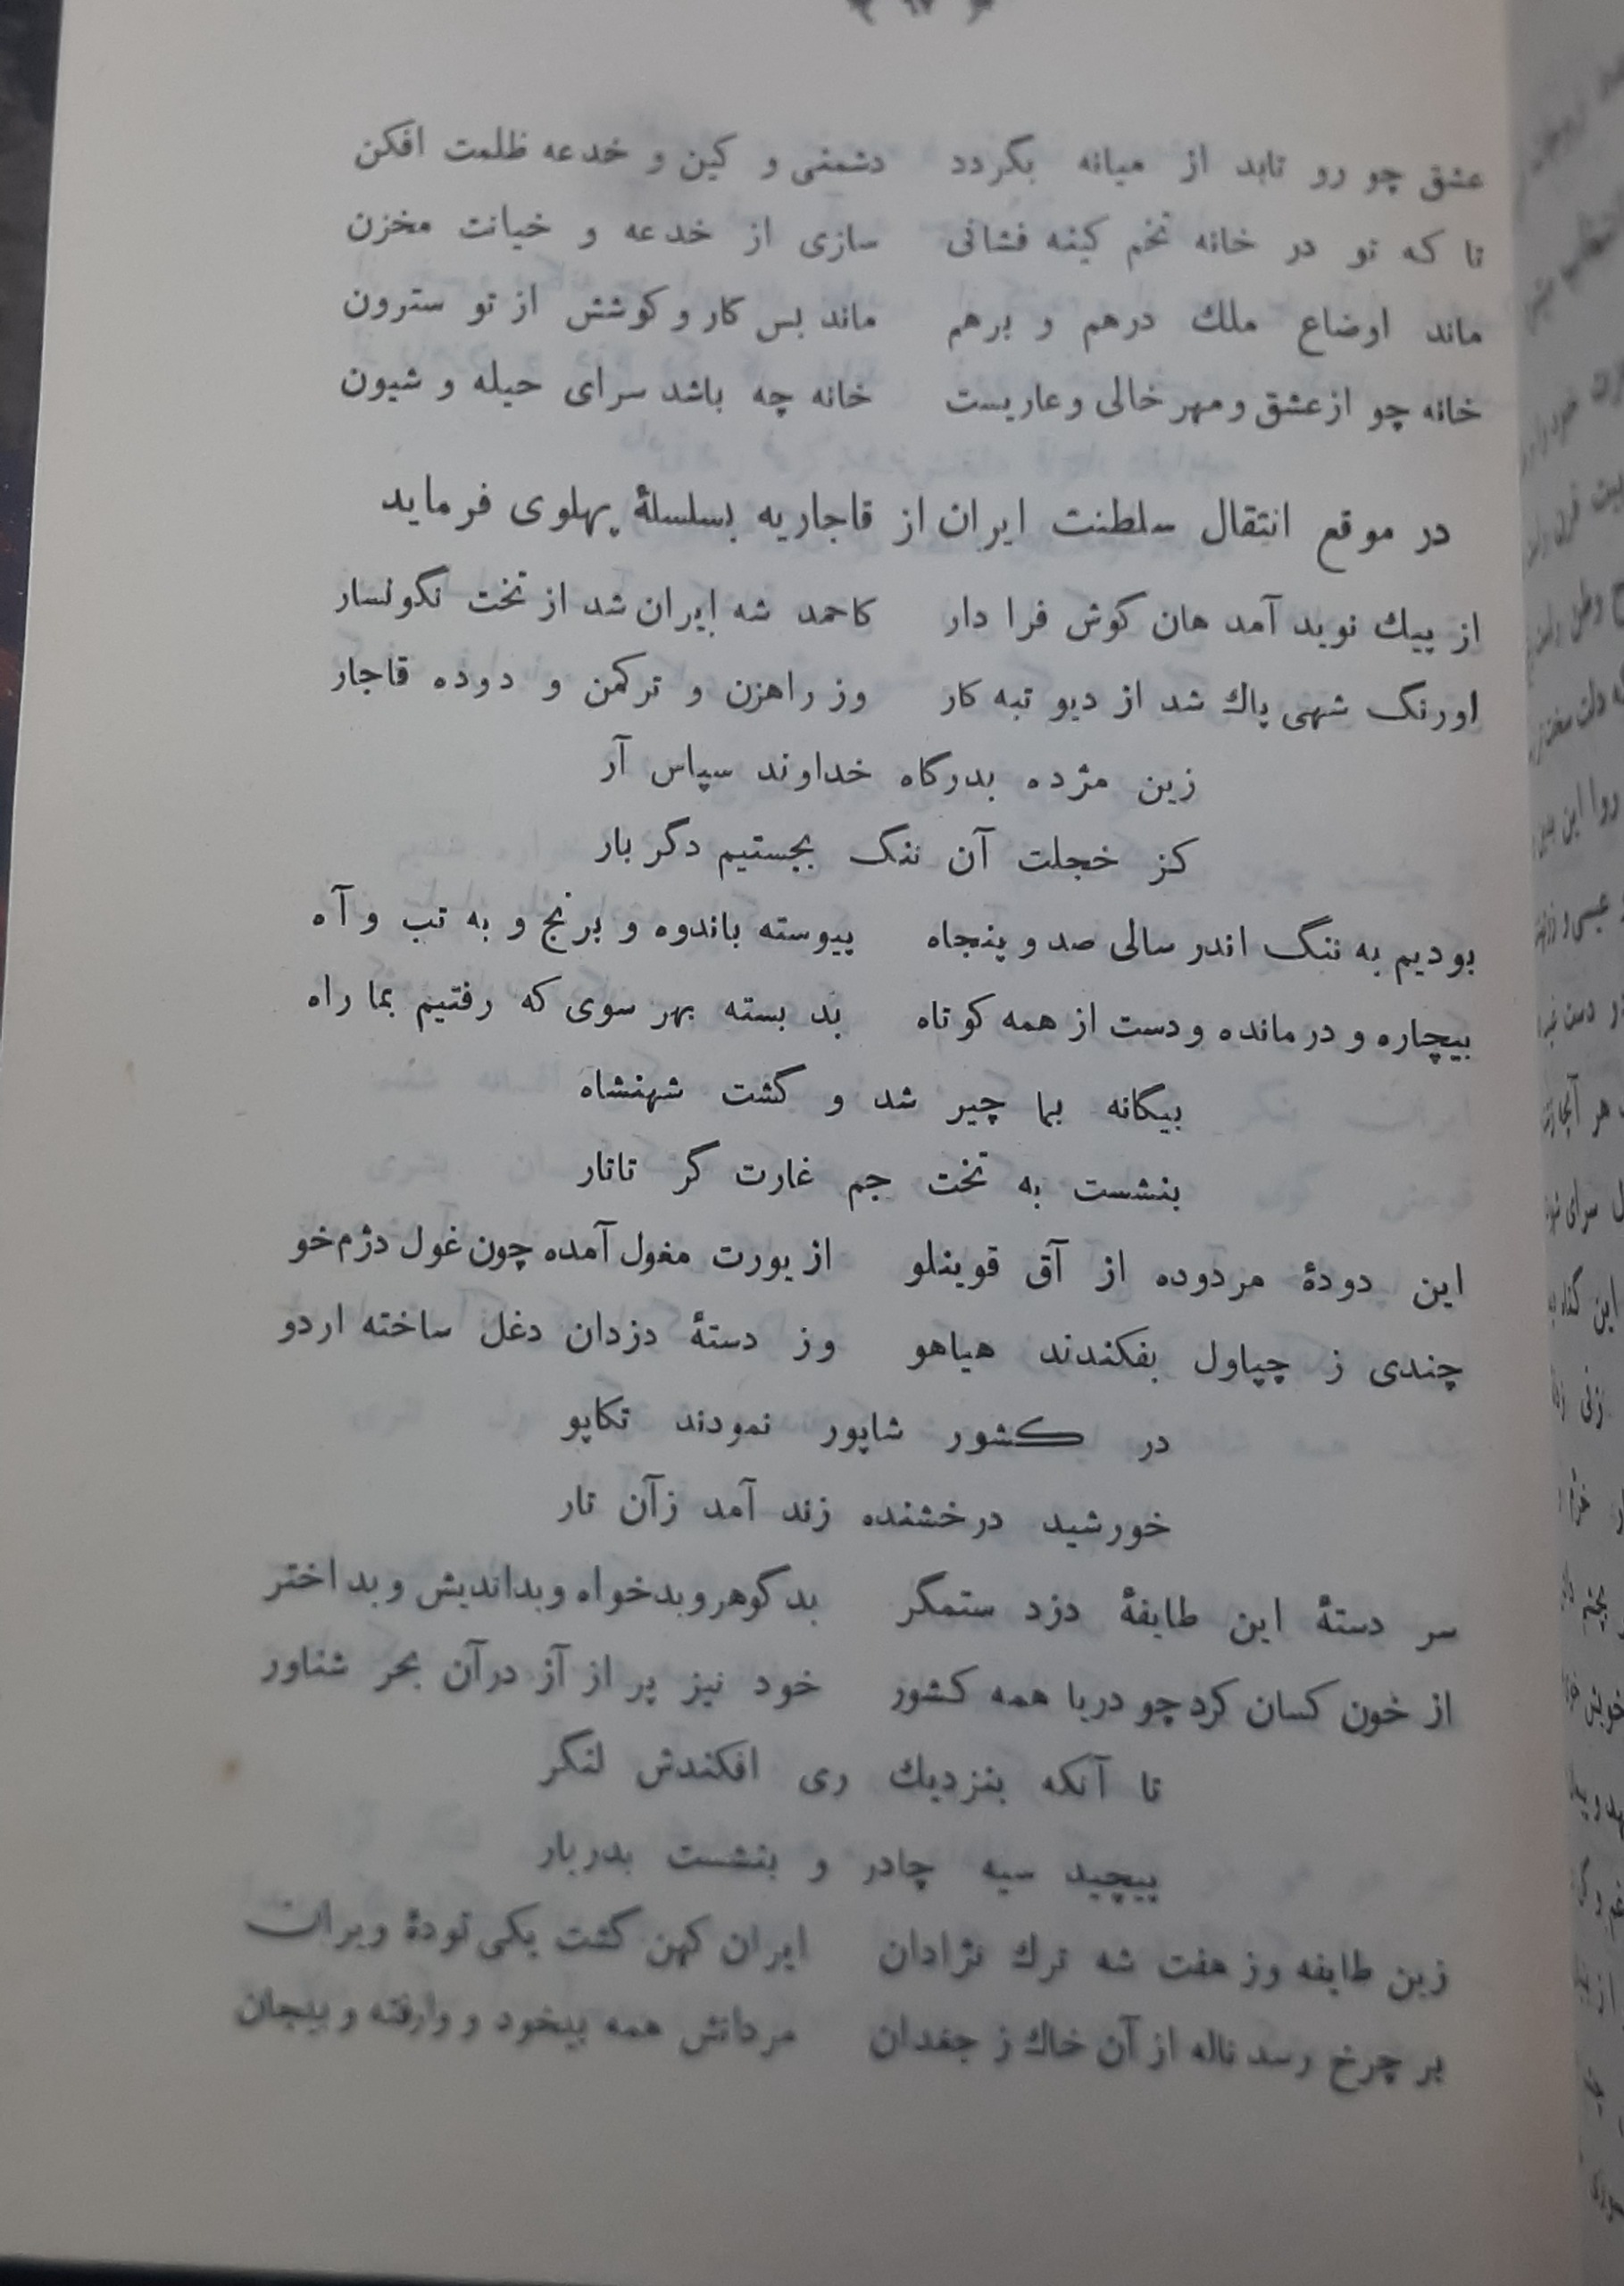 عشق چو رو تابد از میانه بگردد دشمنی و کین و خدعه ظلمت افکن
تا که تو در خانه تخم کینه فشانی سازی از خدعه و خیانت مخزن
ماند اوضاع ملك درهم و برهم ماند بس کار و کوشش از تو سترون
خانه چو از عشق و مهر خالی و عاریست خانه چه باشد سرای حیله و شیون
در موقع انتقال سلطنت ایران از قاجاریه بسلسلهٔ پهلوی فرماید
از پیك نوید آمد هان گوش فرا دار کاحمد شه ایران شد از تخت نگونسار
اورنگ شهی پاك شد از دیو تبه کار وز راهزن و ترکمن و دوده قاجار
زین مژده بدرگاه خداوند سپاس آر
کز خجلت آن ننگ بجستیم دگر بار
بودیم به ننگ اندر سالی صد و پنجاه پیوسته باندوه و برنج و به تب و آه
بیچاره و درمانده و دست از همه کوتاه بد بسته بهر سوی که رفتیم بما راه
بیگانه بما چیر شد و گشت شهنشاه
بنشست به تخت جم غارت گر تاتار
این دودهٔ مردوده از آق قوینلو از یورت مغول آمده چون غول دژم خو
چندی ز چپاول بفکندند هیاهو وز دستهٔ دزدان دغل ساخته اردو
در کشور شاپور نمودند تکاپو
خورشید درخشنده زند آمد زآن تار
سر دستهٔ این طایفهٔ دزد ستمگر بد گوهر و بدخواه و بداندیش و بد اختر
از خون کسان کرد چو دریا همه کشور خود نیز پر از آز در آن بحر شناور
تا آنکه بنزدیك ری افکندش لنگر
پیچید سیه چادر و بنشست بدربار
زین طایفه وز هفت شه ترك نژادان ایران کهن گشت یکی تودهٔ ویران
بر چرخ رسد ناله از آن خاك ز جغدان مردانش همه بیخود و وارفته و بیجان